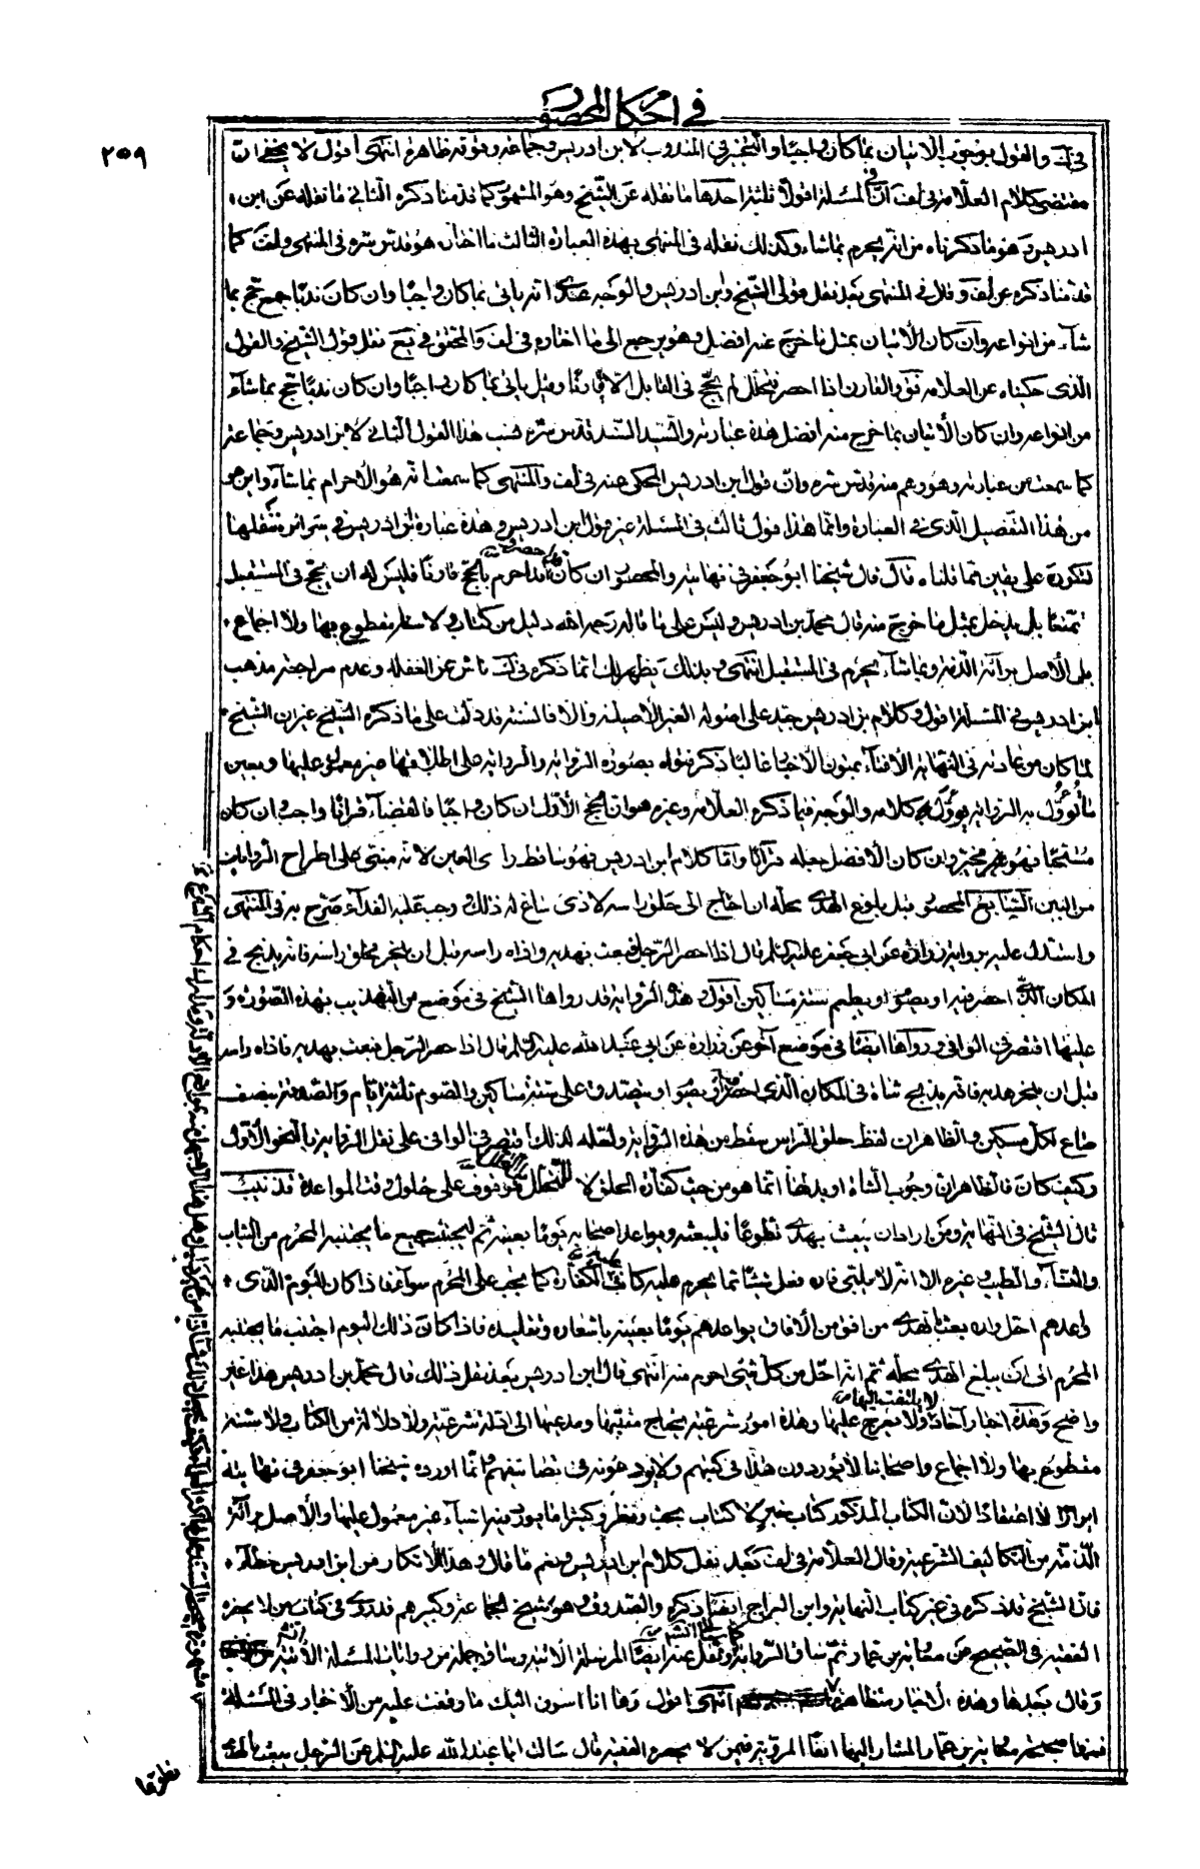 في احكام المحصور
٢٥٩
في ك والقول بوجوب الاتيان بما كان واجبا والتخيير في المندوب لابن ادريس وجماعة وقوته ظاهرة انتهى اقول لا يخفى ان
مقتضى كلام العلامة في لف ان في المسئلة اقوالا ثلثة احدها ما نقله عن الشيخ وهو المشهور كما قدمنا ذكره الثاني ما نقله عن ابن
ادريس وهو ما ذكرناه من انه يحرم بما شاء وكذلك نقله في المنتهى بهذه العبارة الثالث ما اختاره هو قدس سره في المنتهى ولف كما
قدمنا ذكره عن لف وقال في المنتهى بعد نقل قولى الشيخ وابن ادريس والوجه عندي انه ياتي بما كان واجبا وان كان ندبا حج بما
شاء من انواعه وان كان الاتيان بمثل ما خرج عنه افضل وهو يرجع الى ما اختاره في لف والمحقق في يع نقل قول الشيخ والقول
الذى حكيناه عن العلامة فقال والقارن اذا احصر فتحلل لم يحج في القابل الا قارنا وقيل ياتي بما كان واجبا وان كان ندبا حج بما شاء
من انواعه وان كان الاتيان بما خرج منه افضل هذه عبارته والسيد السند قدس سره نسب هذا القول الثاني لابن ادريس وجماعة
كما سمعت من عبارته وهو وهم منه قدس سره وان قول ابن ادريس المحكى عنه في لف والمنتهى كما سمعت انه هو الاحرام بما شاء واين هو
من هذا التفصيل الذى في العبارة وانما هذا قول ثالث في المسئلة غير قول ابن ادريس وهذه عبارة ابن ادريس في سرائره ننقلها
لتكون على يقين مما قلناه قال قال شيخنا ابو جعفر في نهايته والمحصور ان كان قد احرم بالحج قارنا فليس له ان يحج في المستقبل
متمتعا بل يدخل بمثل ما خرج منه قال محمد بن ادريس وليس على ما قاله رحمه الله دليل من كتاب ولا سنة مقطوع بها ولا اجماع
بل الاصل براءة الذمة وبما شاء يحرم في المستقبل انتهى وبذلك يظهر لك ان ما ذكره في ك ناش عن الغفلة وعدم مراجعة مذهب
ابن ادريس في المسئلة اقول وكلام بن ادريس جيد على اصوله الغير الاصيلة والا فالسنة قد دلت على ما ذكره الشيخ غير ان الشيخ
لما كان من عادته في النهاية الافتاء بمتون الاخبار غالبا ذكر قوله بصورة الرواية والرواية على اطلاقها غير معمول عليها وبعين
ما تؤول به الرواية يؤول به كلامه والوجه فيما ذكره العلامة وغيره هو ان الحج الاول ان كان واجبا فالقضاء قرانا واجب وان كان
مستحبا فهو مخير وان كان الافضل جعله قرانا واما كلام ابن ادريس فهو ساقط راى العين لانه مبتنى على اطراح الروايات
من البين الثاني المحصور قبل بلوغ الهدى محله ان احتاج الى حلق راسه لاذى ساغ له ذلك ووجب عليه الفداء صرح به في المنتهى
واستدل عليه برواية زرارة عن ابي جعفر عليه السلام قال اذا احصر الرجل فبعث بهديه واذاه راسه قبل ان ينحر فحلق راسه فانه يذبح في
المكان الذي احصر فيه او يصوم او يطعم ستة مساكين اقول هذه الرواية قد رواها الشيخ في موضع من التهذيب بهذه الصورة و
عليها اقتصر في الوافي ورواها ايضا في موضع آخر عن زرارة عن ابي عبد الله عليه السلام قال اذا حصر الرجل فبعث بهديه فاذاه راسه
قبل ان ينحر هديه فانه يذبح شاة في المكان الذى احصر فيه او يصوم او يتصدق على ستة مساكين والصوم ثلثة ايام والصدقة نصف
صاع لكل مسكين والظاهر ان لفظ حلق الراس سقط من هذه الرواية ولعله لذلك اقتصر في الوافي على نقل الرواية بالنحو الاول
وكيف كان فالظاهر ان وجوب الشاة او بدلها انما هو من حيث كفارة الحلق لا التحلل فهو موقوف على حلول وقت المواعدة قد نيب
قال الشيخ في النهاية ومن اراد ان يبعث بهدى تطوعا فليبعثه ويواعد اصحابه يوما بعينه ثم ليجتنب جميع ما يجتنبه المحرم من الثياب
والنساء والطيب وغيره الا انه لا يلبى فان فعل شيئا مما يحرم عليه كانت عليه الكفارة كما يجب على المحرم سواء فاذا كان اليوم الذي
واعدهم احل وان بعث بالهدى من افق من الافاق يواعدهم يوما بعينه باشعاره وتقليده فاذا كان ذلك اليوم اجتنب ما يجتنبه
المحرم الى ان يبلغ الهدى محله ثم انه احل من كل شئ احرم منه انتهى قال ابن ادريس بعد نقل ذلك قال محمد بن ادريس هذا غير
واضح وهذه اخبار آحاد لا يلتفت اليها ولا يعرج عليها وهذه امور شرعية يحتاج مثبتها ومدعيها الى ادلة شرعية ولا دلالة من الكتاب ولا سنة
مقطوع بها ولا اجماع واصحابنا لا يوردون هذا في كتبهم ولا يودعونه في تصانيفهم وانما اورده شيخنا ابو جعفر في نهايته
ايرادا لا اعتقادا لان الكتاب المذكور كتاب خبر لا كتاب بحث ونظر وكثيرا ما يورد فيه اشياء غير معمول عليها والاصل براءة
الذمة من التكاليف الشرعية وقال العلامة في لف بعد نقل كلام ابن ادريس ونعم ما قال وهذا الانكار من ابن ادريس خطاء
فان الشيخ قد ذكره في غير كتاب النهاية وابن البراج ايضا ذكره والصدوق وهو شيخ الجماعة وكبيرهم قد روى في كتاب من لا يحضره
الفقيه في الصحيح عن معاوية بن عمار ثم ساق الرواية ونقل عنه ايضا المرسلة الاتية وساق جملة من روايات المسئلة الاتية
وقال بعدها وهذه الاخبار متظاهرة انتهى اقول وها انا اسوق اليك ما وقفت عليه من الاخبار في المسئلة
فمنها صحيحة معاوية بن عمار المشار اليها انفا المروية فيمن لا يحضره الفقيه قال سالت ابا عبد الله عليه السلام عن الرجل يبعث بالهدى
تطوعا